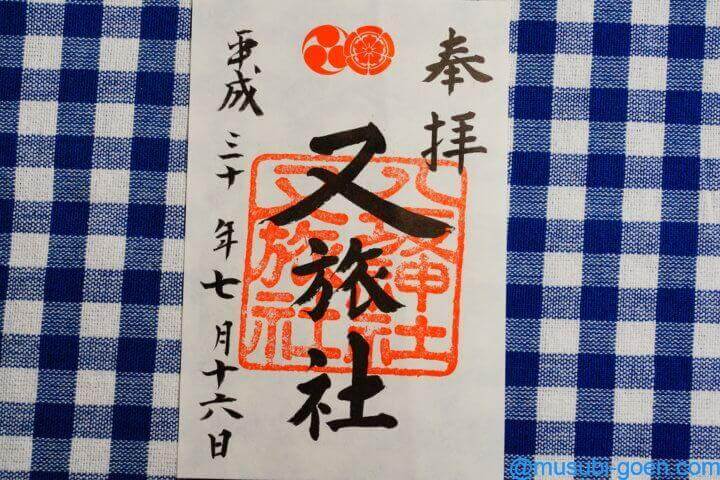 奉拝
又旅社
八坂神社
又旅社
平成三十年七月十六日
@musubi-goen.com